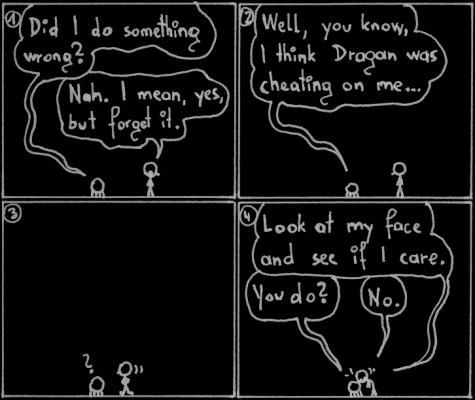 1
Did I do something
wrong?
Nah. I mean, yes,
but forget it.
2
Well, you know,
I think Dragan was
cheating on me...
3
?
4
Look at my face
and see if I care.
You do?
No.